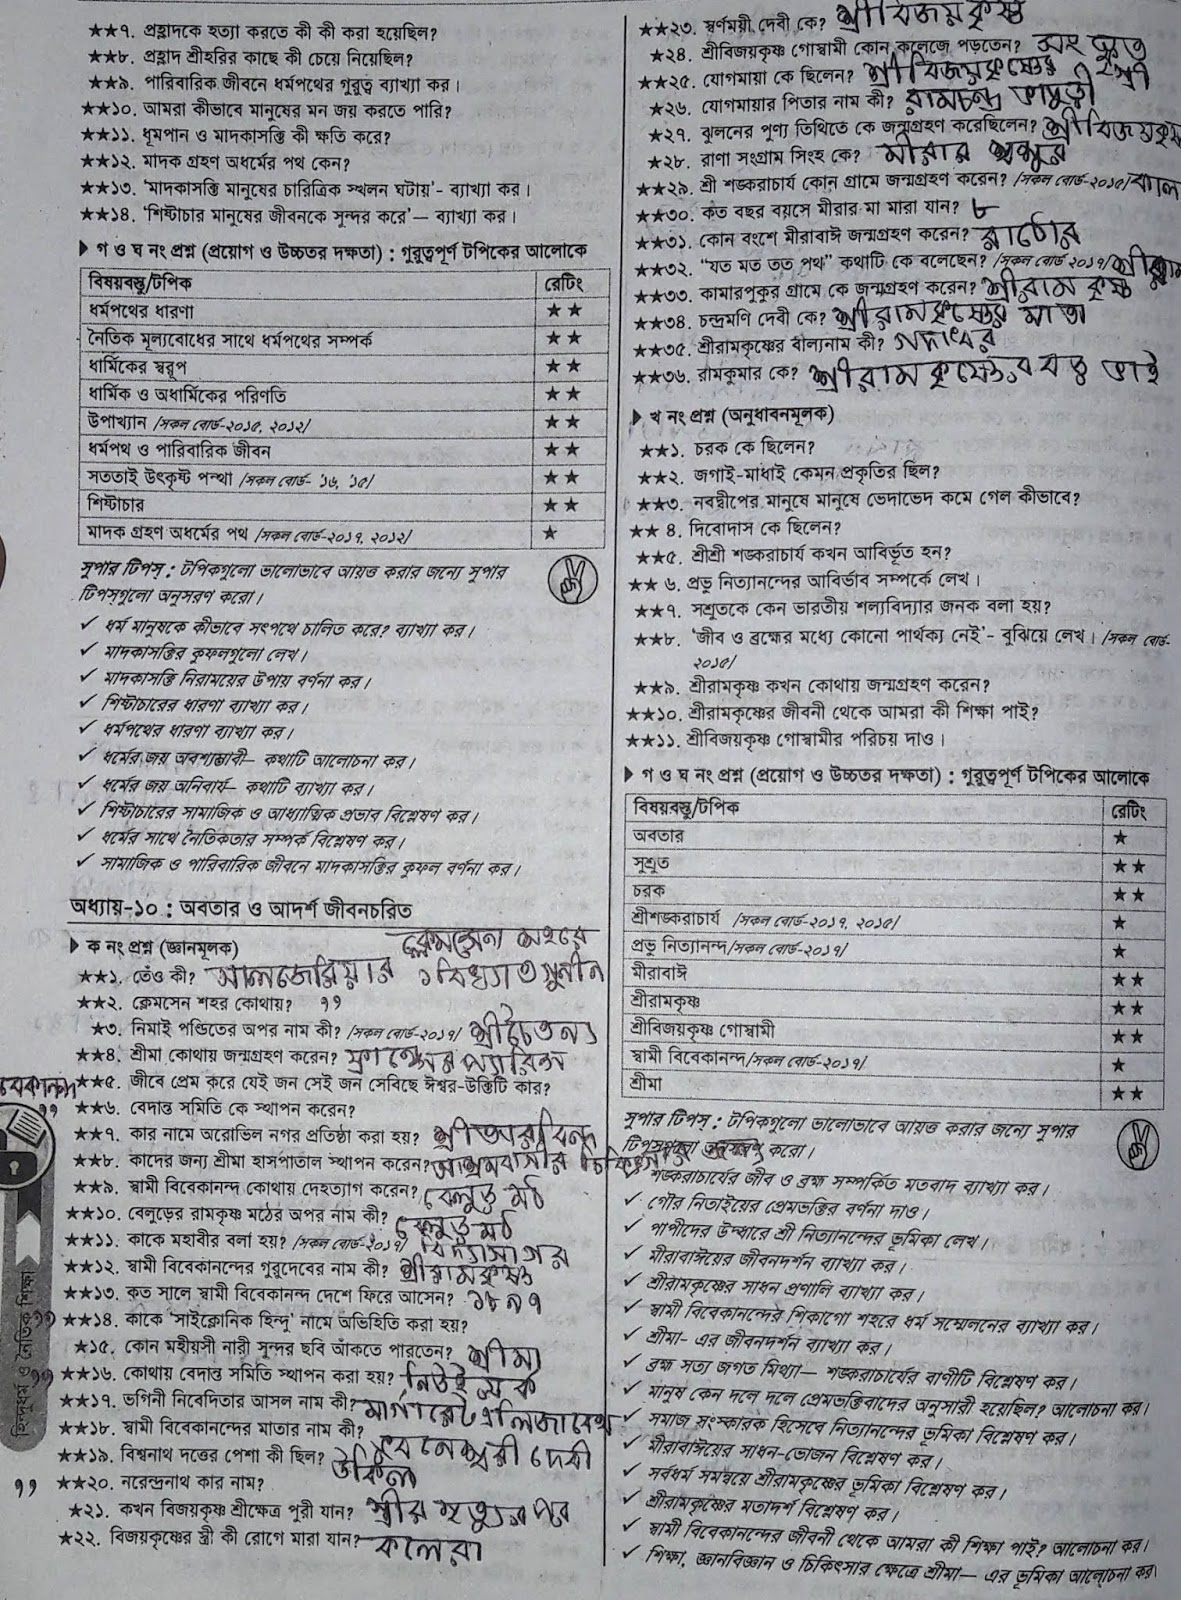 ★★৭. প্রহ্লাদকে হত্যা করতে কী কী করা হয়েছিল?
★★৮. প্রহ্লাদ শ্রীহরির কাছে কী চেয়ে নিয়েছিল?
★★৯. পারিবারিক জীবনে ধর্মপথের গুরুত্ব ব্যাখ্যা কর।
★★১০. আমরা কীভাবে মানুষের মন জয় করতে পারি?
★★১১. ধূমপান ও মাদকাসক্তি কী ক্ষতি করে?
★★১২. মাদক গ্রহণ অধর্মের পথ কেন?
★★১৩. ‘মাদকাসক্তি মানুষের চারিত্রিক স্খলন ঘটায়’- ব্যাখ্যা কর।
★★১৪. ‘শিষ্টাচার মানুষের জীবনকে সুন্দর করে’— ব্যাখ্যা কর।
গ ও ঘ নং প্রশ্ন (প্রয়োগ ও উচ্চতর দক্ষতা) : গুরুত্বপূর্ণ টপিকের আলোকে
বিষয়বস্তু/টপিক রেটিং
ধর্মপথের ধারণা ★★
নৈতিক মূল্যবোধের সাথে ধর্মপথের সম্পর্ক ★★
ধার্মিকের স্বরূপ ★★
ধার্মিক ও অধার্মিকের পরিণতি ★★
উপাখ্যান /সকল বোর্ড-২০১৫, ২০১২/ ★★
ধর্মপথ ও পারিবারিক জীবন ★★
সততাই উৎকৃষ্ট পন্থা /সকল বোর্ড- '১৬, '১৫/ ★★
শিষ্টাচার ★★
মাদক গ্রহণ অধর্মের পথ /সকল বোর্ড-২০১৭, ২০১২/ ★
সুপার টিপস্ : টপিকগুলো ভালোভাবে আয়ত্ত করার জন্যে সুপার
টিপস্‌গুলো অনুসরণ করো।
✓ ধর্ম মানুষকে কীভাবে সৎপথে চালিত করে? ব্যাখ্যা কর।
✓ মাদকাসক্তির কুফলগুলো লেখ।
✓ মাদকাসক্তি নিরাময়ের উপায় বর্ণনা কর।
✓ শিষ্টাচারের ধারণা ব্যাখ্যা কর।
✓ ধর্মপথের ধারণা ব্যাখ্যা কর।
✓ ধর্মের জয় অবশ্যম্ভাবী— কথাটি আলোচনা কর।
✓ ধর্মের জয় অনিবার্য— কথাটি ব্যাখ্যা কর।
✓ শিষ্টাচারের সামাজিক ও আধ্যাত্মিক প্রভাব বিশ্লেষণ কর।
✓ ধর্মের সাথে নৈতিকতার সম্পর্ক বিশ্লেষণ কর।
✓ সামাজিক ও পারিবারিক জীবনে মাদকাসক্তির কুফল বর্ণনা কর।
অধ্যায়-১০ : অবতার ও আদর্শ জীবনচরিত
ক নং প্রশ্ন (জ্ঞানমূলক)
★★১. তেঁও কী? আলজেরিয়ার
★★২. ক্লেমসেন শহর কোথায়? ১১
★৩. নিমাই পণ্ডিতের অপর নাম কী? /সকল বোর্ড-২০১৭/ শ্রীচৈতন্য
★★৪. শ্রীমা কোথায় জন্মগ্রহণ করেন? ফ্রান্সের প্যারিস
★★৫. জীবে প্রেম করে যেই জন সেই জন সেবিছে ঈশ্বর-উক্তিটি কার?
★★৬. বেদান্ত সমিতি কে স্থাপন করেন?
★★৭. কার নামে অরোভিল নগর প্রতিষ্ঠা করা হয়? শ্রীঅরবিন্দ
★★৮. কাদের জন্য শ্রীমা হাসপাতাল স্থাপন করেন? আশ্রমবাসীর
★★৯. স্বামী বিবেকানন্দ কোথায় দেহত্যাগ করেন? বেলুড় মঠ
★★১০. বেলুড়ের রামকৃষ্ণ মঠের অপর নাম কী? বেলুড় মঠ
★★১১. কাকে মহাবীর বলা হয়? /সকল বোর্ড-২০১৭/ বিদ্যাসাগর
★★১২. স্বামী বিবেকানন্দের গুরুদেবের নাম কী? শ্রীরামকৃষ্ণ
★★১৩. কত সালে স্বামী বিবেকানন্দ দেশে ফিরে আসেন? ১৮৯৭
★★১৪. কাকে ‘সাইক্লোনিক হিন্দু’ নামে অভিহিতি করা হয়?
★১৫. কোন মহীয়সী নারী সুন্দর ছবি আঁকতে পারতেন? শ্রীমা
★★১৬. কোথায় বেদান্ত সমিতি স্থাপন করা হয়? নিউইয়র্ক
★★১৭. ভগিনী নিবেদিতার আসল নাম কী? মার্গারেট এলিজাবেথ
★★১৮. স্বামী বিবেকানন্দের মাতার নাম কী? ভুবনেশ্বরী দেবী
★★১৯. বিশ্বনাথ দত্তের পেশা কী ছিল? উকিল
★★২০. নরেন্দ্রনাথ কার নাম?
★২১. কখন বিজয়কৃষ্ণ শ্রীক্ষেত্র পুরী যান? স্ত্রীর মৃত্যুর পরে
★২২. বিজয়কৃষ্ণের স্ত্রী কী রোগে মারা যান? কলেরা
হিন্দুধর্ম ও নৈতিক শিক্ষা
★★২৩. স্বর্ণময়ী দেবী কে? শ্রীবিজয়কৃষ্ণ
★২৪. শ্রীবিজয়কৃষ্ণ গোস্বামী কোন কলেজে পড়তেন? সংস্কৃত
★★২৫. যোগমায়া কে ছিলেন? শ্রীবিজয়কৃষ্ণের স্ত্রী
★২৬. যোগমায়ার পিতার নাম কী? রামচন্দ্র ভাদুড়ী
★২৭. ঝুলনের পুণ্য তিথিতে কে জন্মগ্রহণ করেছিলেন? শ্রীবিজয়কৃষ্ণ
★২৮. রাণা সংগ্রাম সিংহ কে? মীরার শ্বশুর
★★২৯. শ্রী শঙ্করাচার্য কোন গ্রামে জন্মগ্রহণ করেন? /সকল বোর্ড-২০১৫/
★★৩০. কত বছর বয়সে মীরার মা মারা যান? ৮
★★৩১. কোন বংশে মীরাবাঈ জন্মগ্রহণ করেন? রাঠোর
★★৩২. “যত মত তত পথ” কথাটি কে বলেছেন? /সকল বোর্ড ২০১৭/ শ্রীরাম
★★৩৩. কামারপুকুর গ্রামে কে জন্মগ্রহণ করেন? শ্রীরামকৃষ্ণ
★★৩৪. চন্দ্রমণি দেবী কে? শ্রীরামকৃষ্ণের মাতা
★★৩৫. শ্রীরামকৃষ্ণের বাল্যনাম কী? গদাধর
★★৩৬. রামকুমার কে? শ্রীরামকৃষ্ণের বড় ভাই
খ নং প্রশ্ন (অনুধাবনমূলক)
★★১. চরক কে ছিলেন?
★★২. জগাই-মাধাই কেমন প্রকৃতির ছিল?
★★৩. নবদ্বীপের মানুষে মানুষে ভেদাভেদ কমে গেল কীভাবে?
★★ ৪. দিবোদাস কে ছিলেন?
★★৫. শ্রীশ্রী শঙ্করাচার্য কখন আবির্ভূত হন?
★★ ৬. প্রভু নিত্যানন্দের আবির্ভাব সম্পর্কে লেখ।
★★৭. সশ্রুতকে কেন ভারতীয় শল্যবিদ্যার জনক বলা হয়?
★★৮. ‘জীব ও ব্রহ্মের মধ্যে কোনো পার্থক্য নেই’- বুঝিয়ে লেখ। /সকল বোর্ড-
২০১৫/
★★৯. শ্রীরামকৃষ্ণ কখন কোথায় জন্মগ্রহণ করেন?
★★১০. শ্রীরামকৃষ্ণের জীবনী থেকে আমরা কী শিক্ষা পাই?
★★১১. শ্রীবিজয়কৃষ্ণ গোস্বামীর পরিচয় দাও।
গ ও ঘ নং প্রশ্ন (প্রয়োগ ও উচ্চতর দক্ষতা) : গুরুত্বপূর্ণ টপিকের আলোকে
বিষয়বস্তু/টপিক রেটিং
অবতার ★
সুশ্রুত ★★
চরক ★★
শ্রীশঙ্করাচার্য /সকল বোর্ড-২০১৭, ২০১৫/ ★
প্রভু নিত্যানন্দ/সকল বোর্ড-২০১৭/ ★
মীরাবাঈ ★★
শ্রীরামকৃষ্ণ ★★
শ্রীবিজয়কৃষ্ণ গোস্বামী ★★
স্বামী বিবেকানন্দ/সকল বোর্ড-২০১৭/ ★
শ্রীমা ★★
সুপার টিপস্ : টপিকগুলো ভালোভাবে আয়ত্ত করার জন্যে সুপার
টিপস্‌গুলো অনুসরণ করো।
✓ শঙ্করাচার্যের জীব ও ব্রহ্ম সম্পর্কিত মতবাদ ব্যাখ্যা কর।
✓ গৌর নিতাইয়ের প্রেমভক্তির বর্ণনা দাও।
✓ পাপীদের উদ্ধারে শ্রী নিত্যানন্দের ভূমিকা লেখ।
✓ মীরাবাঈয়ের জীবনদর্শন ব্যাখ্যা কর।
✓ শ্রীরামকৃষ্ণের সাধন প্রণালি ব্যাখ্যা কর।
✓ স্বামী বিবেকানন্দের শিকাগো শহরে ধর্ম সম্মেলনের ব্যাখ্যা কর।
✓ শ্রীমা- এর জীবনদর্শন ব্যাখ্যা কর।
✓ ব্রহ্ম সত্য জগত মিথ্যা— শঙ্করাচার্যের বাণীটি বিশ্লেষণ কর।
✓ মানুষ কেন দলে দলে প্রেমভক্তিবাদের অনুসারী হয়েছিল? আলোচনা কর।
✓ সমাজ সংস্কারক হিসেবে নিত্যানন্দের ভূমিকা বিশ্লেষণ কর।
✓ মীরাবাঈয়ের সাধন-ভোজন বিশ্লেষণ কর।
✓ সর্বধর্ম সমন্বয়ে শ্রীরামকৃষ্ণের ভূমিকা বিশ্লেষণ কর।
✓ শ্রীরামকৃষ্ণের মতাদর্শ বিশ্লেষণ কর।
✓ স্বামী বিবেকানন্দের জীবনী থেকে আমরা কী শিক্ষা পাই? আলোচনা কর।
✓ শিক্ষা, জ্ঞানবিজ্ঞান ও চিকিৎসার ক্ষেত্রে শ্রীমা— এর ভূমিকা আলোচনা কর।